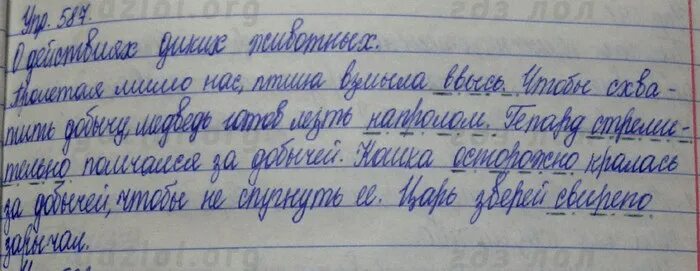 Упр. 587.
О действиях диких животных.
Пролетая мимо нас, птица взмыла ввысь. Чтобы схва-
тить добычу, медведь готов лезть напролом. Гепард стреми-
тельно помчался за добычей. Кошка осторожно кралась
за добычей, чтобы не спугнуть ее. Царь зверей свирепо
зарычал.